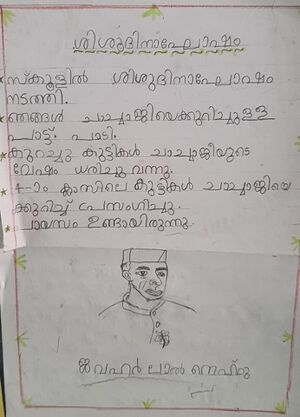 ശിശുദിനാഘോഷം
സ്കൂളിൽ ശിശുദിനാഘോഷം
നടത്തി.
ഞങ്ങൾ ചാച്ചാജിയെക്കുറിച്ചുള്ള
പാട്ട് പാടി.
കുറച്ചു കുട്ടികൾ ചാച്ചാജിയുടെ
വേഷം ധരിച്ചു വന്നു.
4-ാം ക്ലാസിലെ കുട്ടികൾ ചാച്ചാജിയെ
ക്കുറിച്ച് പ്രസംഗിച്ചു.
പായസം ഉണ്ടായിരുന്നു.
ജവഹർ ലാൽ നെഹ്റു